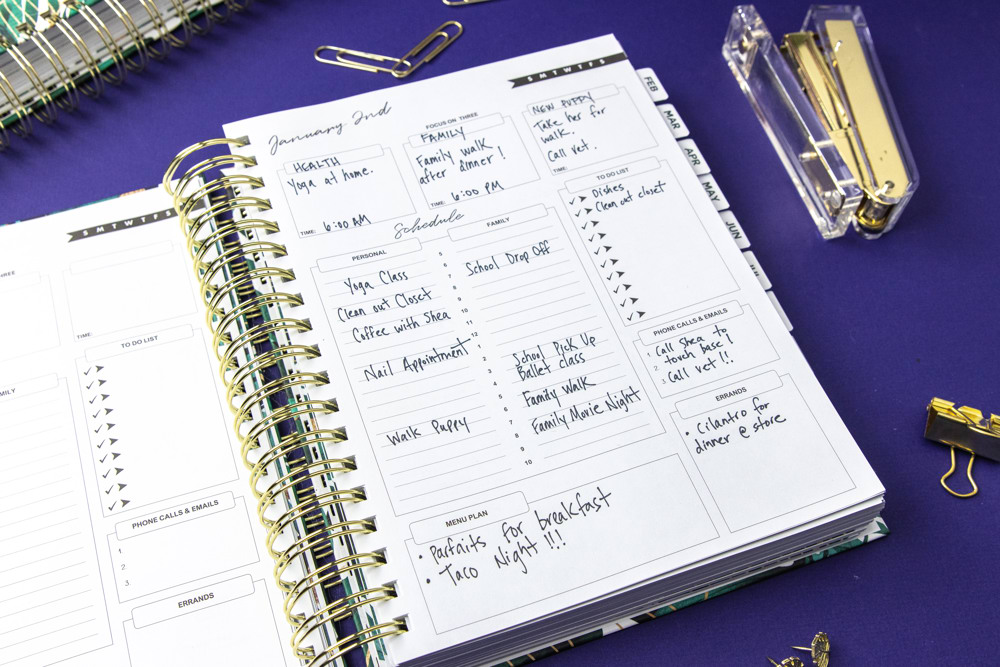 S M T W T F S
TIME:
TO DO LIST
PHONE CALLS & EMAILS
1.
2.
3.
ERRANDS
January 2nd
S M T W T F S
HEALTH
Yoga at home.
TIME: 6:00 AM
FOCUS ON THREE
FAMILY
Family walk
after dinner!
TIME: 6:00 PM
NEW PUPPY
Take her for
walk.
Call vet.
TIME:
Schedule
PERSONAL
Yoga Class
Clean out Closet
Coffee with Shea
Nail Appointment
Walk Puppy
5
6
7
8
9
10
11
12
1
2
3
4
5
6
7
8
9
10
FAMILY
School Drop Off
School Pick Up
Ballet class
Family Walk
Family Movie Night
TO DO LIST
Dishes
Clean out closet
PHONE CALLS & EMAILS
1. Call Shea to
2. touch base!
3. Call vet!!
ERRANDS
• Cilantro for
dinner @ store
MENU PLAN
• Parfaits for breakfast
• Taco Night!!!
FEB
MAR
APR
MAY
JUN